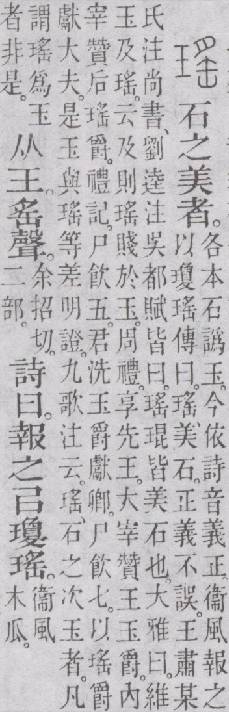 瑤
石之美者。
各本石譌玉。今依詩音義正。衞風報之
以瓊瑤。傳曰。瑤、美石。正義不誤。王肅某
氏注尚書、劉逵注吳都賦皆曰。瑤琨皆美石也。大雅曰。維
玉及瑤。云及則瑤賤於玉。周禮。享先王。大宰贊王玉爵。內
宰贊后瑤爵。禮記。尸飮五。君洗玉爵獻卿。尸飮七。以瑤爵
獻大夫。是玉與瑤等差明證。九歌注云。瑤、石之次玉者。凡
謂瑤爲玉
者非是。
从王䍃聲。
余招切。
二部。
詩曰。報之㠯瓊瑤。
衞風
木瓜。